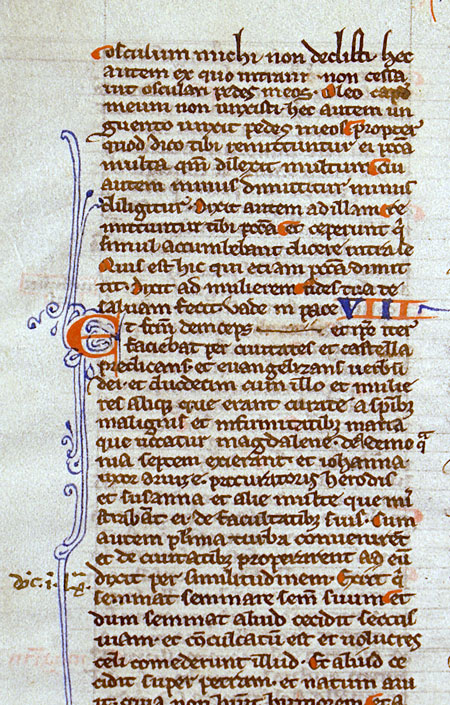 Osculum michi non dedisti hec
autem ex quo intravit non cessa
vit osculari pedes meos. Oleo caput
meum non unxisti hec autem un
guento unxit pedes meos propter
quod dico tibi remittuntur ei pcca
multa qm dilexit multum Cui
autem minus dimittitur minus
diligitur. Dixit autem ad illam re
mittuntur tibi pcca Et ceperunt q
simul accumbebant dicere intra se
Quis est hic qui etiam pcca dimit
tit. Dixit ad mulierem fides tua te
salvam fecit vade in pace VIII
Et fcm deinceps et ipse iter
faciebat per civitates et castella
predicans et evangelizans verbu
dei et duodecim cum illo et mulie
res alique que erant curate a spibz
malignis et infirmitatibz maria
que vocatur magdalene de demo
nia septem exierant et iohanna
uxor procuratoris herodis
et susanna et alie multe que mi
strabat ei de facultatibz suis. Cum
autem plima turba conveniret
et de civitatibz properarent ad eu
dixit per similitudinem Exiit q
seminat seminare sem suum et
dum seminat aliud cecidit secus
viam et coculcatu est et volucres
celi comederunt illud. Et aliud ce
cidit super petram et natum aru
it quia non hunt humorem Et a